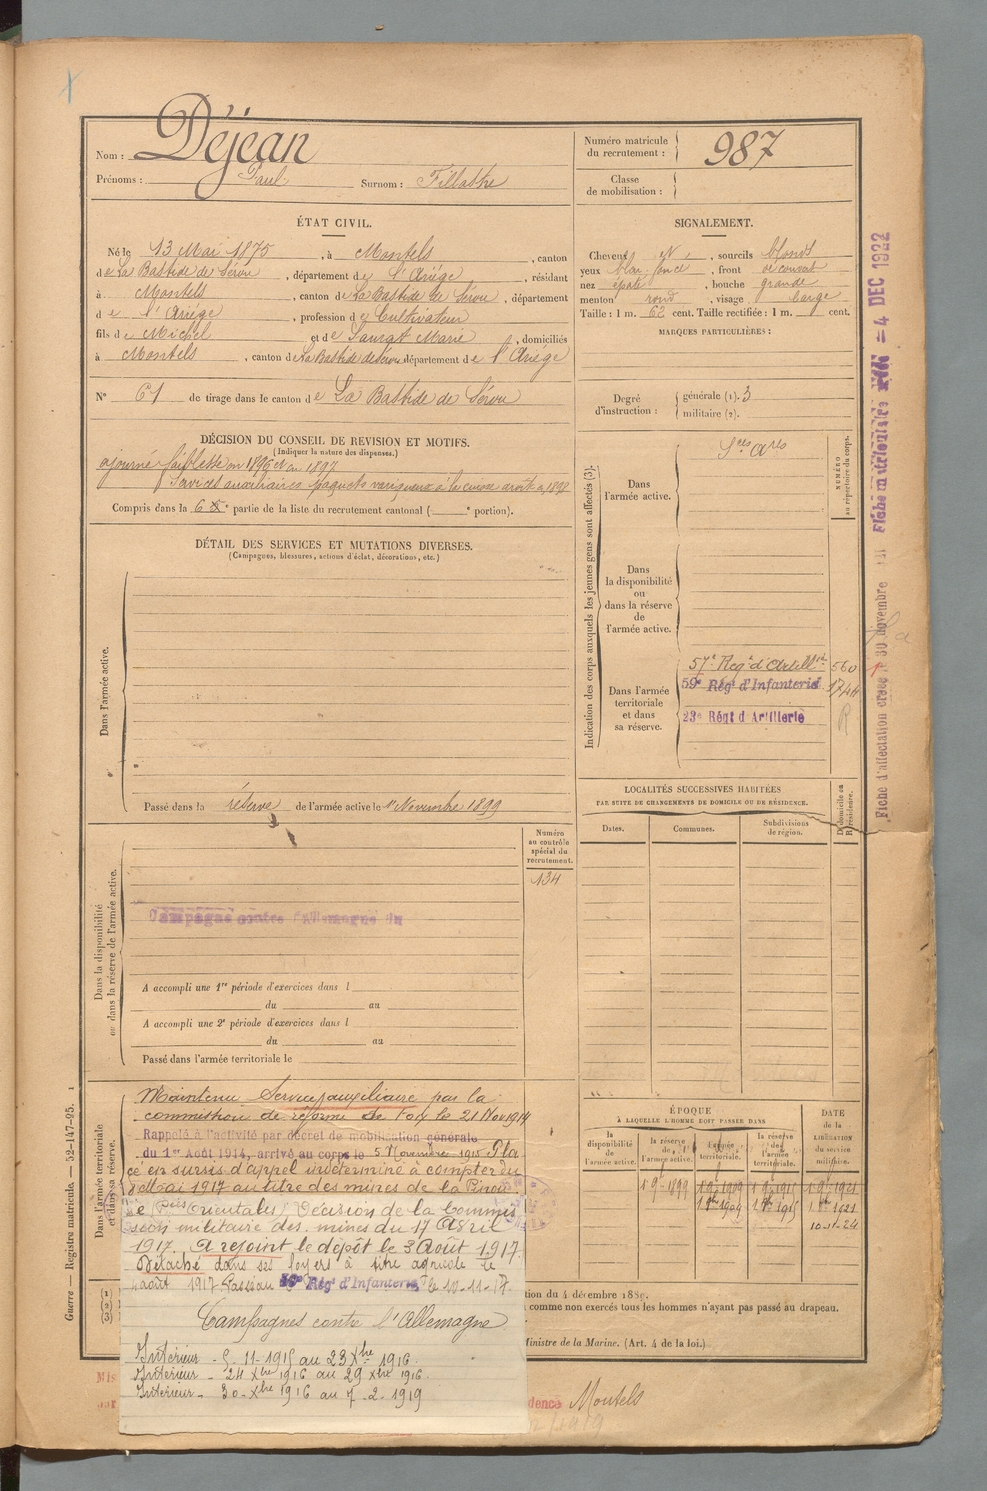 Nom : Déjean
Prénoms : Paul Surnom : Fillastre
Numéro matricule du recrutement : 987
Classe de mobilisation :
ÉTAT CIVIL.
Né le 13 Mai 1875, à Montels, canton
de La Bastide de Sérou, département de l'Ariège, résidant
à Montels, canton de La Bastide de Sérou, département
de l'Ariège, profession de Cultivateur
fils de Michel et de Saurat Marie, domiciliés
à Montels, canton de La Bastide de Sérou, département de l'Ariège
N° 61 de tirage dans le canton de La Bastide de Sérou
SIGNALEMENT.
Cheveux et, sourcils blonds
yeux bleu foncé, front découvert
nez épaté, bouche grande
menton rond, visage large
Taille : 1 m. 62 cent. Taille rectifiée : 1 m. cent.
MARQUES PARTICULIÈRES :
Degré d'instruction : générale (1). 3
militaire (2).
DÉCISION DU CONSEIL DE REVISION ET MOTIFS.
(Indiquer la nature des dispenses.)
ajourné faiblesse en 1896 et en 1897
Services auxiliaires paquets variqueux à la cuisse droite en 1898
Compris dans la 6e partie de la liste du recrutement cantonal ( e portion).
DÉTAIL DES SERVICES ET MUTATIONS DIVERSES.
(Campagnes, blessures, actions d'éclat, décorations, etc.)
Dans l'armée active.
Passé dans la réserve de l'armée active le 1er Novembre 1899
Indication des corps auxquels les jeunes gens sont affectés (3).
NUMÉRO au répertoire du corps.
Dans l'armée active.
Sces Ares
Dans la disponibilité ou dans la réserve de l'armée active.
Dans l'armée territoriale et dans sa réserve.
57e Régt d'Artillie 560
59e Régt d'Infanterie 1744
23e Régt d'Artillerie R
LOCALITÉS SUCCESSIVES HABITÉES
PAR SUITE DE CHANGEMENTS DE DOMICILE OU DE RÉSIDENCE.
Dates. Communes. Subdivisions de région. Domicile ou Résidence.
Numéro au contrôle spécial du recrutement.
134
Dans la disponibilité ou dans la réserve de l'armée active.
Campagne contre l'Allemagne du
A accompli une 1re période d'exercices dans l
du au
A accompli une 2e période d'exercices dans l
du au
Passé dans l'armée territoriale le
Dans l'armée territoriale et dans sa réserve.
Maintenu Service auxiliaire par la
commission de réforme de Foix le 21 Nov 1914
Rappelé à l'activité par décret de mobilisation générale
du 1er Août 1914, arrivé au corps le 5 Novembre 1915 Pla
cé en sursis d'appel indéterminé à compter du
8 Mai 1917 au titre des mines de la Pinou
se (Pées Orientales) Décision de la commis
sion militaire des mines du 17 Avril
1917. A rejoint le dépôt le 3 Août 1917.
Détaché dans ses foyers à titre agricole le
août 1917 Passé au 59e Régt d'Infanterie, le 10-11-17.
Campagnes contre l'Allemagne
Intérieur - 5-11-1915 au 23 Xbre 1916.
Intérieur - 24 Xbre 1916 au 29 Xbre 1916.
Intérieur - 30 Xbre 1916 au 7-2-1919
ÉPOQUE
À LAQUELLE L'HOMME DOIT PASSER DANS
la disponibilité de l'armée active. la réserve de l'armée active. l'armée territoriale. la réserve de l'armée territoriale.
DATE de la LIBÉRATION du service militaire.
1 9bre 1899 1 9bre 1909 1 9bre 1915 1 9bre 1921
10-11-24
(1)
(2)
(3)
tion du 4 décembre 1889.
comme non exercés tous les hommes n'ayant pas passé au drapeau.
Ministre de la Marine. (Art. 4 de la loi.)
dence Montels
Guerre. — Registre matricule. — 52-147-95.
Fiche d'affectation créée le 30 novembre
Fiche matriculaire
=4 DEC 1922